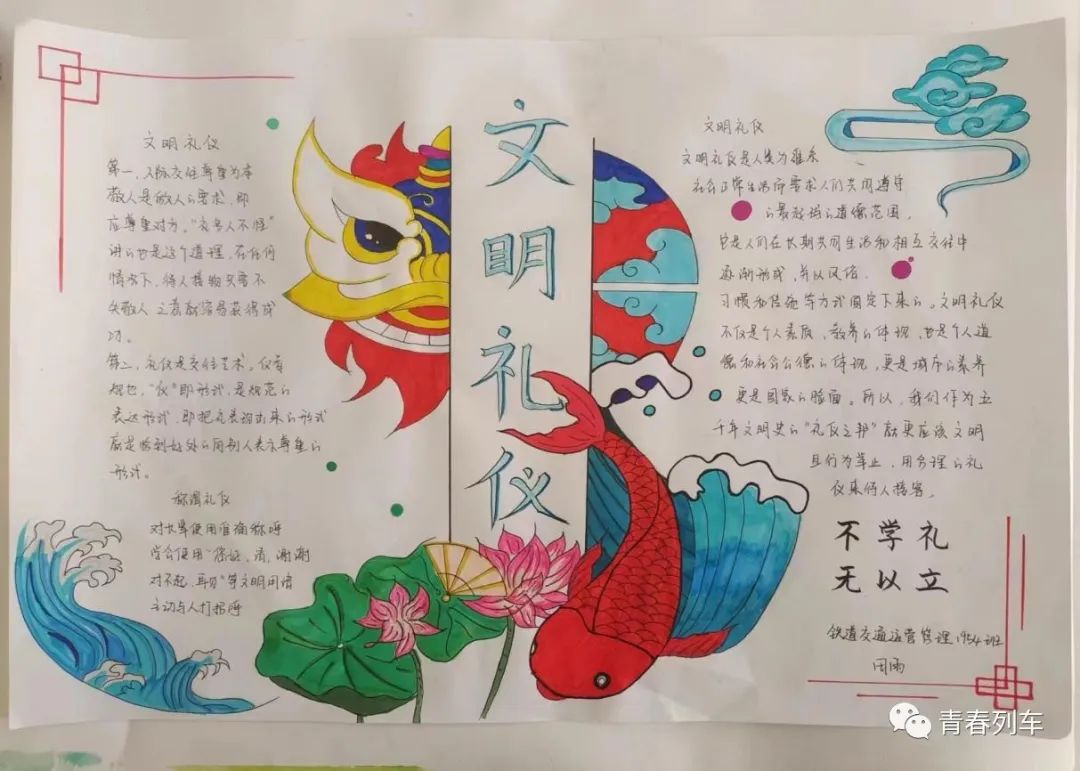 文明礼仪
文明礼仪
第一，人际交往尊重为本
敬人是做人的要求，即
应尊重对方。“礼多人不怪”
讲的也是这个道理，在任何
情况下，待人接物只要不
失敬人 之意就容易获得成
功。
第二，礼仪是交往艺术。仪有
规也，“仪”即形式，是规范的
表达形式，即把礼表现出来的形式
就是恰到好处的向别人表示尊重的
形式。
称谓礼仪
对长辈使用准确称呼
学会使用“您好，请，谢谢
对不起，再见”等文明用语
主动与人打招呼
文明礼仪
文明礼仪是人类为维系
社会正常生活而要求人们共同遵守
的最起码的道德范围，
它是人们在长期共同生活和相互交往中
逐渐形成，并以风俗、
习惯和传统等方式固定下来的。文明礼仪
不仅是个人素质、教养的体现，也是个人道
德和社会公德的体现，更是城市的素养
更是国家的脸面。所以，我们作为五
千年文明史的“礼仪之邦”就更应该文明
且行为举止，用合理的礼
仪来待人接客。
不学礼
无以立
铁道交通运营管理1954班
青春列车